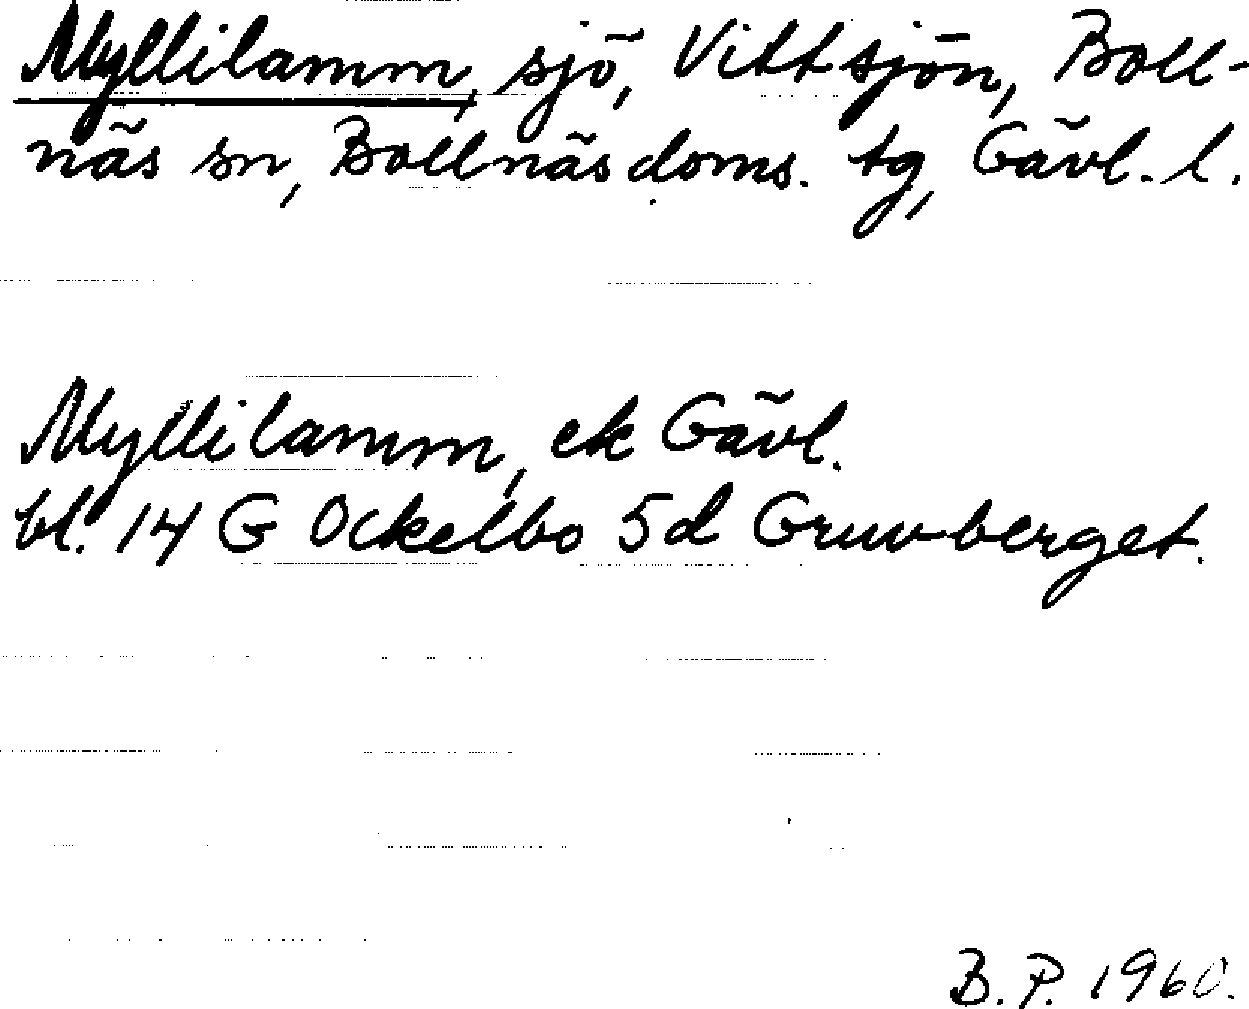 Myllilamm, sjö, Vittsjön, Boll-
näs sn, Bollnäs doms. tg, Gävl. l.
Myllilamm, ek Gävl.
bl. 14 G Ockelbo 5d Gruvberget.
B. P. 1960.